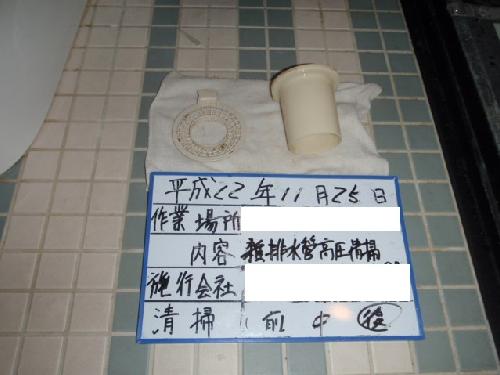 平成22年11月25日
作業場所
内容 雑排水管高圧清掃
施行会社
清掃 前 中 後